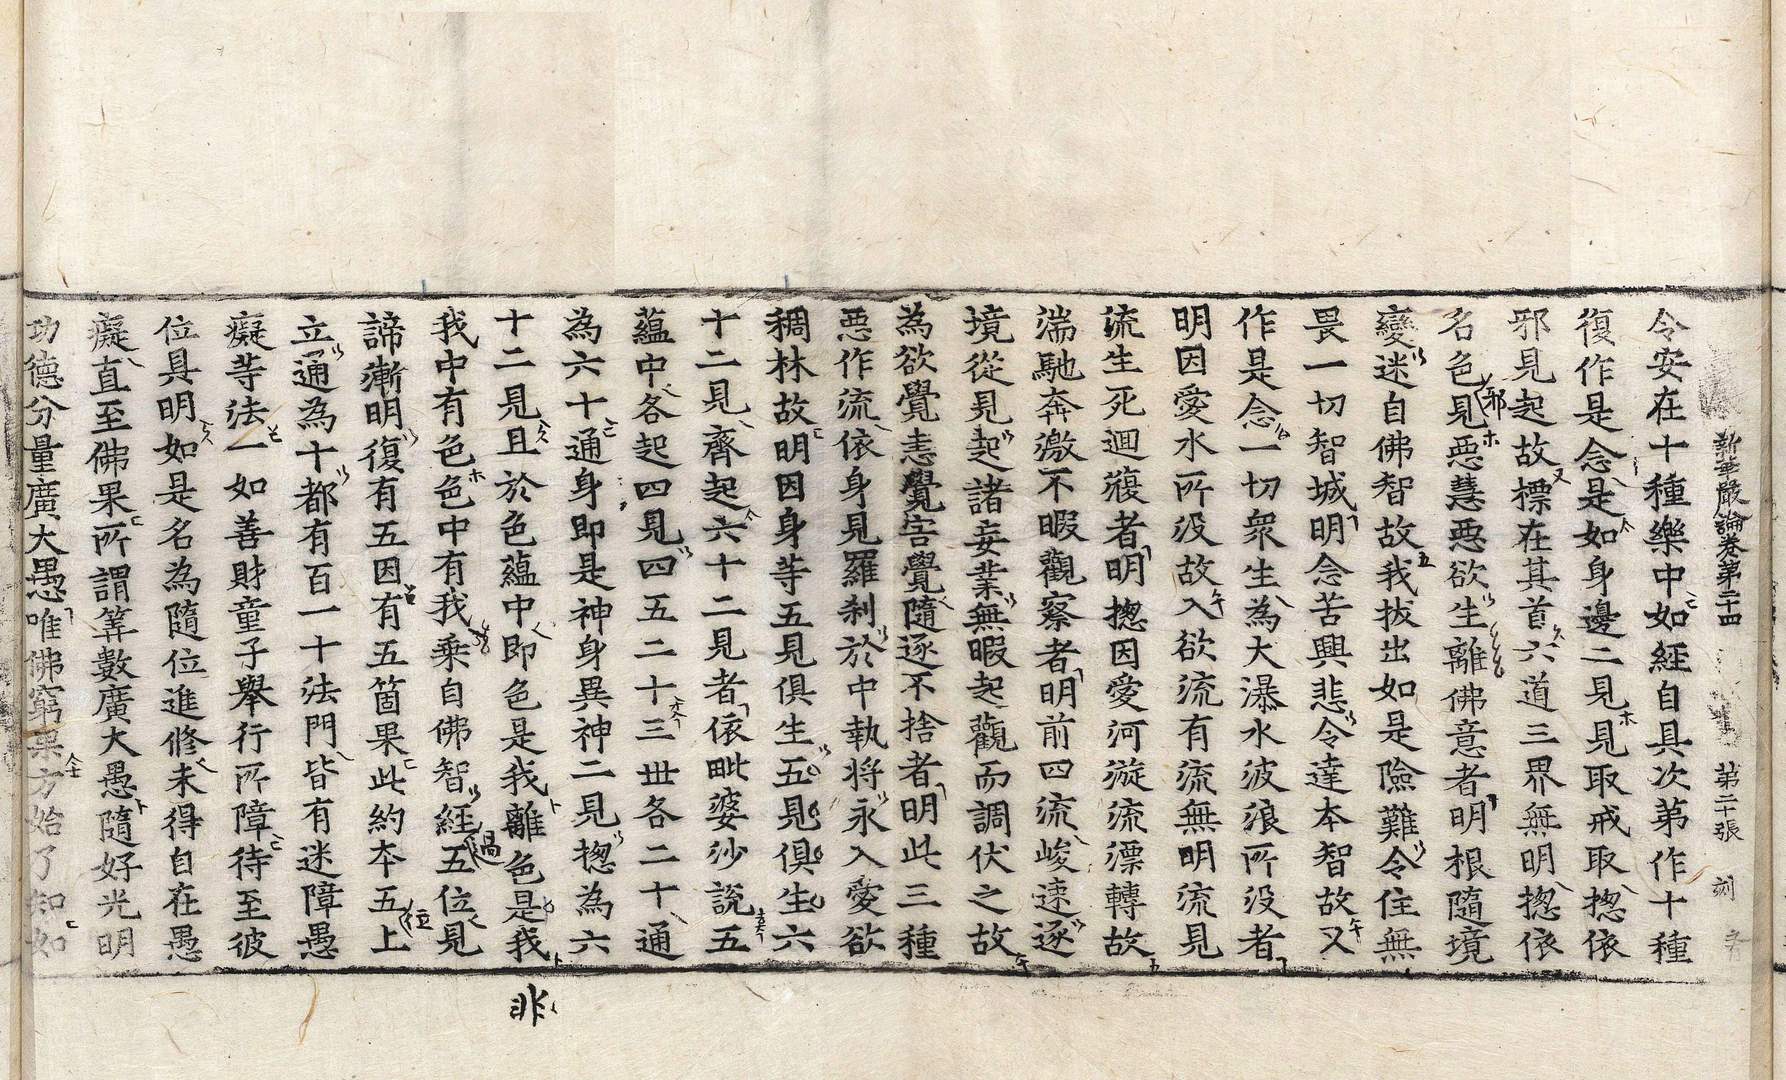 新華嚴論卷第二十四 第二十張 刻
令安在十種樂中如經自具次第作十種
復作是念是如身邊二見見取戒取揔依
邪見起故標在其首六道三界無明揔依
名色見惡慧惡欲生離佛意者明根隨境
邪
變迷自佛智故我拔出如是險難令住無
畏一切智城明念苦興悲令達本智故又
作是念一切衆生為大瀑水波浪所没者
明因愛水所没故入欲流有流無明流見
流生死迴澓者明揔因愛河漩流漂轉故
湍馳奔激不暇觀察者明前四流峻速逐
境從見起諸妄業無暇起觀而調伏之故
為欲覺恚覺害覺隨逐不捨者明此三種
惡作流依身見羅刹於中執將永入愛欲
稠林故明因身等五見俱生五見俱生六
十二見齊起六十二見者依毗婆沙説五
蘊中各起四見四五二十三世各二十通
為六十通身即是神身異神二見揔為六
十二見且於色蘊中即色是我離色是我
非
我中有色色中有我乘自佛智經五位見
過
諦漸明復有五因有五箇果此約本五上
位
立通為十都有百一十法門皆有迷障愚
癡等法一如善財童子舉行所障待至彼
位具明如是名為隨位進修未得自在愚
癡直至佛果所謂筭數廣大愚隨好光明
功德分量廣大愚唯佛窮果方始了知如